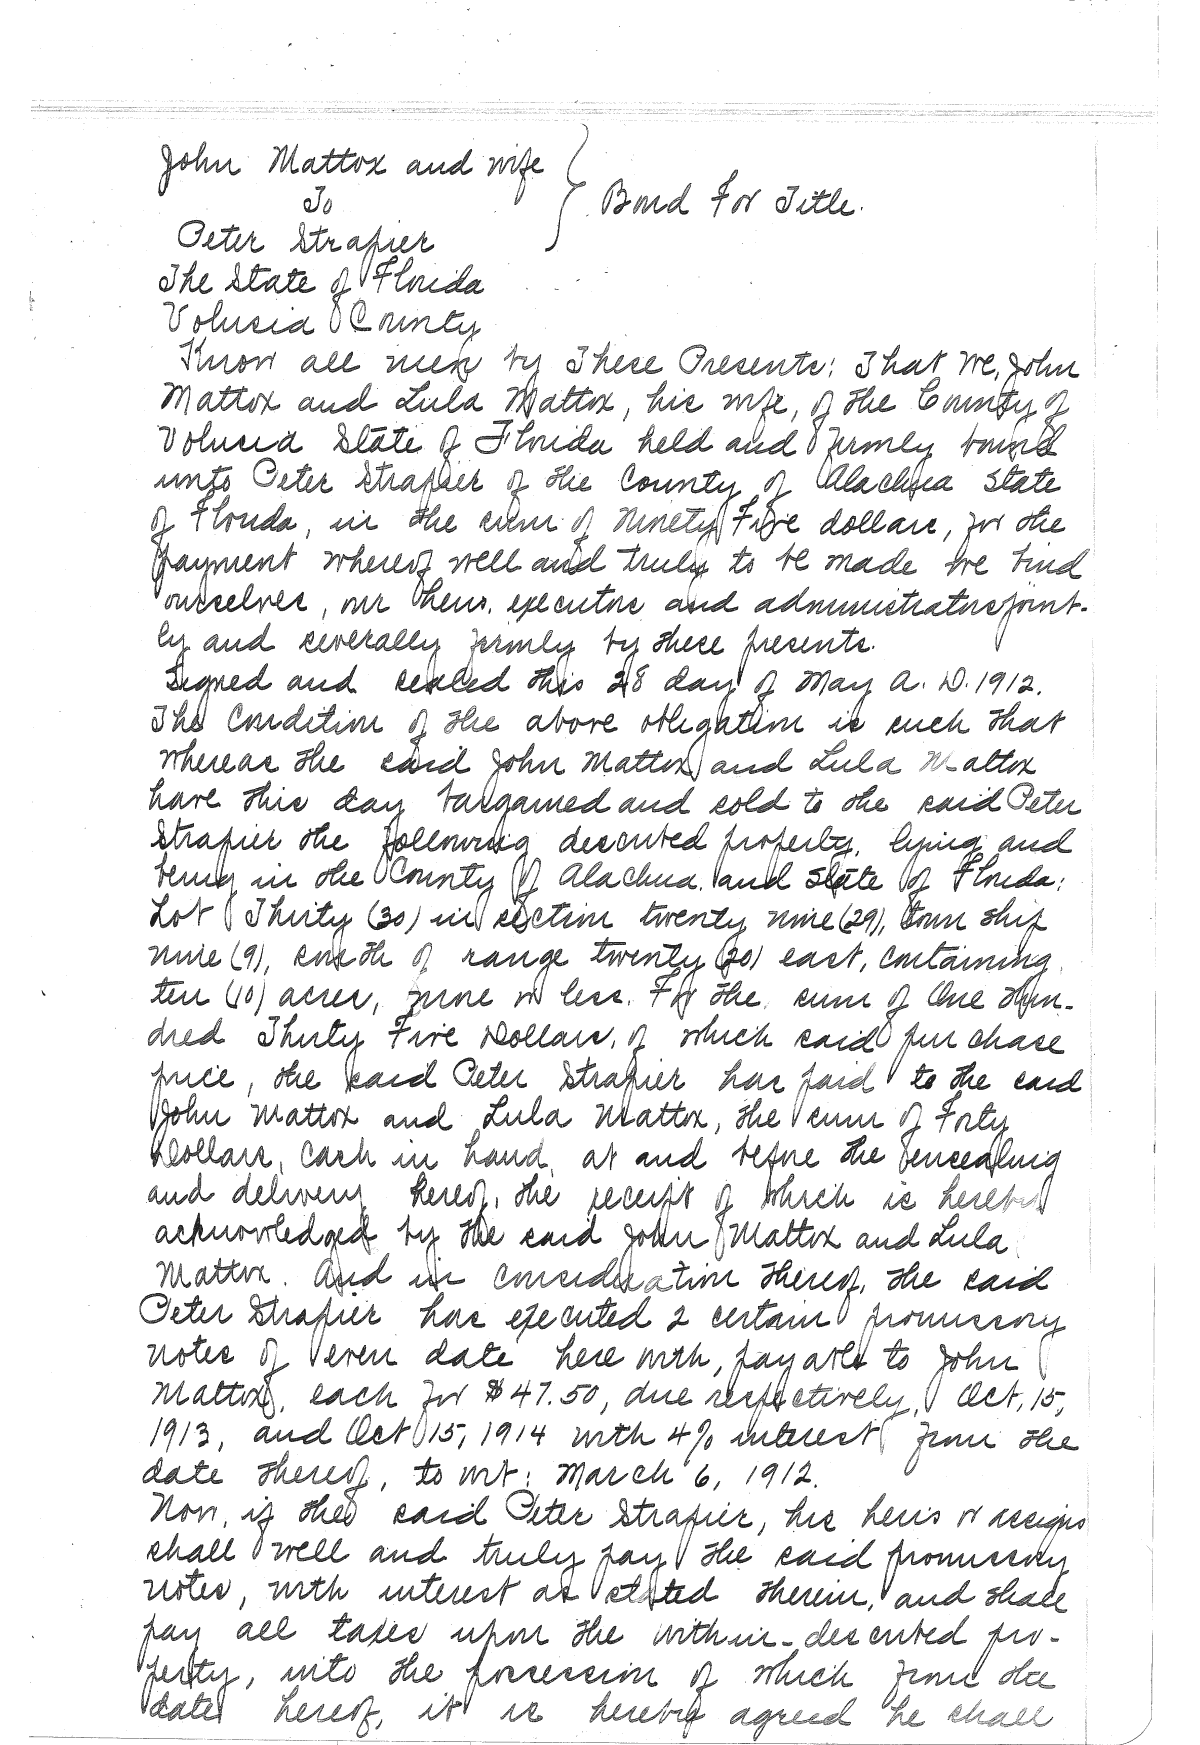 John Mattox and wife
To
Bond For Title.
Peter Strapier
The State of Florida
Volusia County
Know all men by These Presents: That We, John
Mattox and Lula Mattox, his wife, of the County of
Volusia State of Florida held and firmly bound
unto Peter Strapier of the County of Alachua State
of Florida, in the sum of Ninety Five dollars, for the
payment whereof well and truly to be made we bind
ourselves, our heirs, executors and administrators joint-
ly and severally firmly by these presents.
Signed and sealed this 28 day of May A. D. 1912.
The Condition of the above obligation is such that
whereas the said John Mattox and Lula Mattox
have this day bargained and sold to the said Peter
Strapier the following described property, lying and
being in the County of Alachua, and State of Florida:
Lot Thirty (30) in section twenty nine (29), town ship
nine (9), south of range twenty (20) east, containing
ten (10) acres, more or less. For the sum of One Hun-
dred Thirty Five Dollars, of which said pur chase
price, the said Peter Strapier has paid to the said
John Mattox and Lula Mattox, the sum of Forty
Dollars, cash in hand, at and before the ensealing
and delivery hereof, the receipt of which is hereby
acknowledged by the said John Mattox and Lula
Mattox. And in consideration thereof, the said
Peter Strapier has executed 2 certain promissory
notes of even date here with, payable to John
Mattox, each for $47.50, due respectively, Oct, 15,
1913, and Oct 15, 1914 with 4% interest from the
date thereof, to wit: March 6, 1912.
Now, if the said Peter Strapier, his heirs or assigns
shall well and truly pay the said promissory
notes, with interest as stated therein, and shall
pay all taxes upon the within-described pro-
perty, into the possession of which from the
date hereof, it is hereby agreed he shall